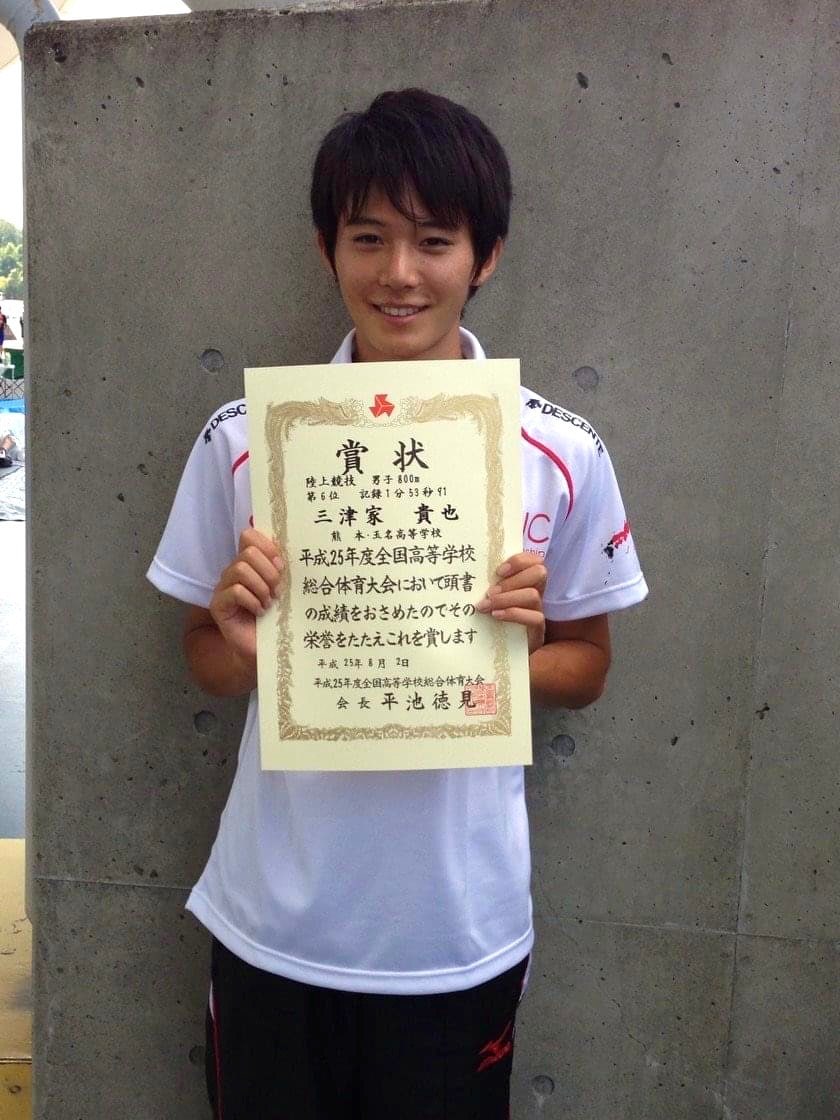 DESCENTE
賞状
陸上競技 男子800m
第6位 記録1分53秒91
三津家 貴也
熊本・玉名高等学校
平成25年度全国高等学校
総合体育大会において頭書
の成績をおさめたのでその
栄誉をたたえこれを賞します
平成 25年 8月 2日
平成25年度全国高等学校総合体育大会
会長 平池徳見